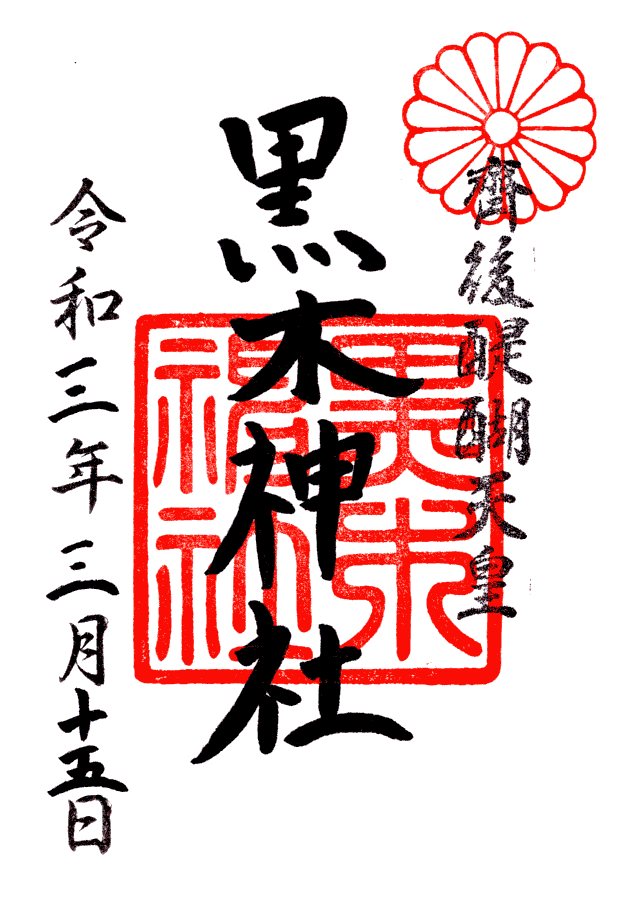 齊後醍醐天皇
黒木神社
黒木
神社
令和三年三月十五日